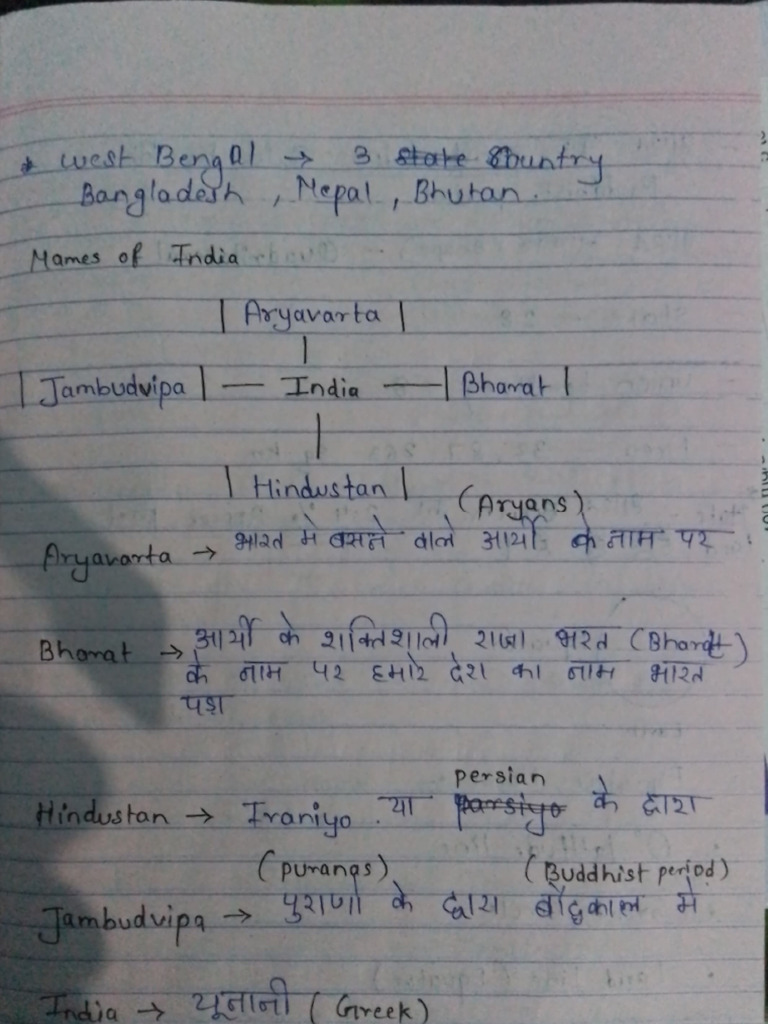 * West Bengal → 3 state Country
Bangladesh, Nepal, Bhutan.
Names of India
| Aryavarta |
| Jambudvipa | — India — | Bharat |
| Hindustan |
(Aryans)
Aryavarta → भारत मे बसने वाले आर्यो के नाम पर
Bharat → आर्यो के शक्तिशाली राजा भरत (Bharat)
के नाम पर हमारे देश का नाम भारत
पड़ा
persian
Hindustan → Iraniyo या parsiyo के द्वारा
(puranas) (Buddhist period)
Jambudvipa → पुराणो के द्वारा बौद्धकाल मे
India → यूनानी (Greek)